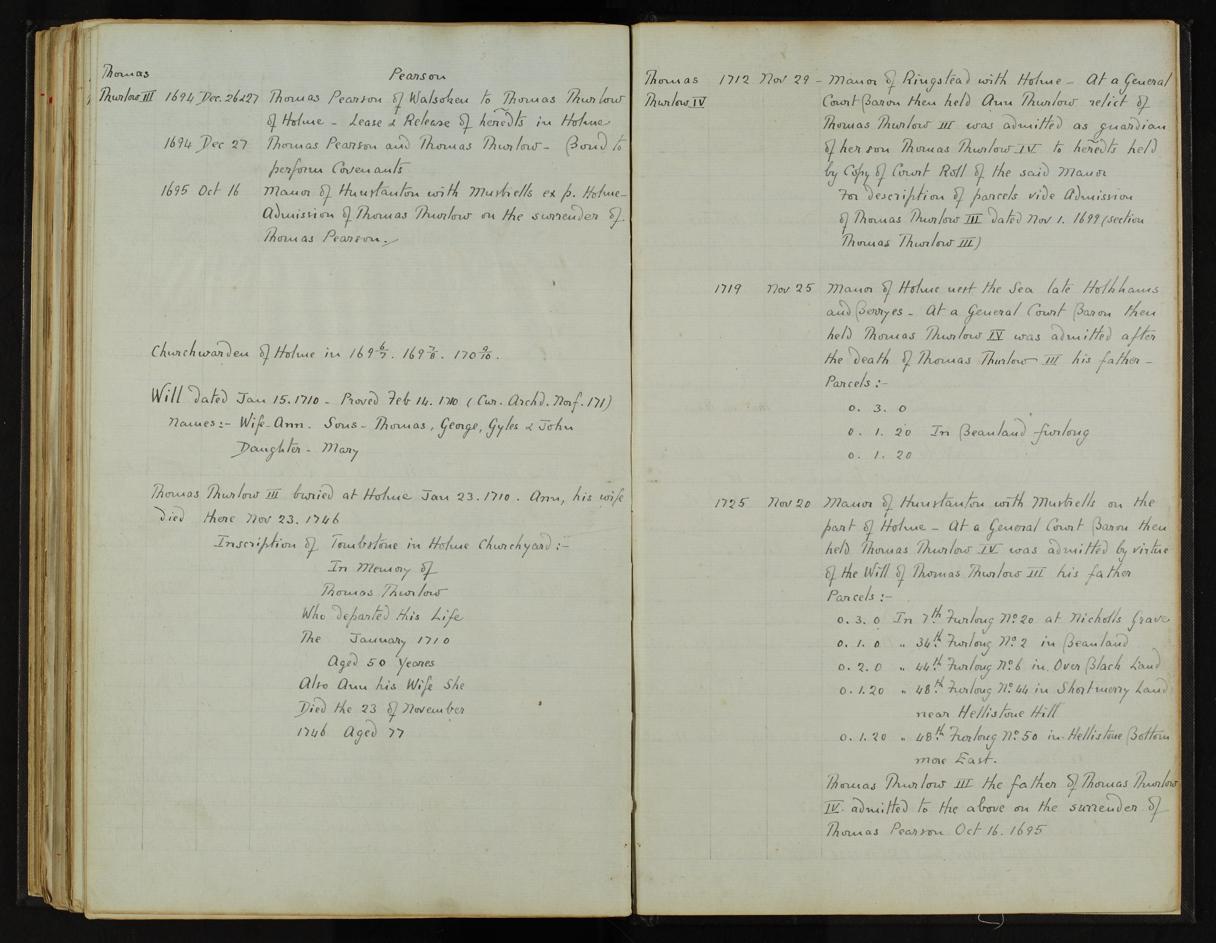 Thomas
Pearson
Thurlow III 1694 Dec. 26&27 Thomas Pearson of Walsoken to Thomas Thurlow
of Holme - Lease & Release of heredts in Holme
1694 Dec 27 Thomas Pearson and Thomas Thurlow - Bond to
perform Covenants
1695 Oct 16 Manor of Hunstanton with Mustrells ex p. Holme -
Admission of Thomas Thurlow on the surrender of
Thomas Pearson.
Churchwarden of Holme in 169 6/7. 169 7/8. 170 9/10.
Will dated Jan 15. 1710 - Proved Feb 14. 1710 (Cur. Archd. Norf. 171)
Names:- Wife - Ann. Sons - Thomas, George, Gyles & John
Daughter - Mary
Thomas Thurlow III buried at Holme Jan 23. 1710. Ann, his wife
died there Nov 23. 1746
Inscription of Tombstone in Holme Churchyard :-
In Memory of
Thomas Thurlow
Who departed this Life
The January 1710
Aged 50 Yeares
Also Ann his Wife She
Died the 23 of November
1746 Aged 77
Thomas 1712 Nov 29 - Manor of Ringstead with Holme - At a General
Thurlow IV Court Baron then held Ann Thurlow relict of
Thomas Thurlow III was admitted as guardian
of her son Thomas Thurlow IV to heredts held
by Copy of Court Roll of the said Manor
For description of parcels vide Admission
of Thomas Thurlow III dated Nov 1. 1699 (section
Thomas Thurlow III)
1719 Nov 25 Manor of Holme next the Sea late Holkhams
and Berryes - At a General Court Baron then
held Thomas Thurlow IV was admitted after
the death of Thomas Thurlow III his father -
Parcels :-
0. 3. 0
0. 1. 20 In Beanland furlong
0. 1. 20
1725 Nov 20 Manor of Hunstanton with Mustrells on the
part of Holme - At a General Court Baron then
held Thomas Thurlow IV was admitted by virtue
of the Will of Thomas Thurlow III his father
Parcels :-
0. 3. 0 In 7th Furlong No 20 at Nicholls Grave
0. 1. 0 " 34th Furlong No 2 in Beanland
0. 2. 0 " 44th Furlong No 6 in Over Black Land
0. 1. 20 " 48th Furlong No 44 in Shortmerry Land
near Hellistone Hill
0. 1. 20 " 48th Furlong No 50 in Hellistone Bottom
more East.
Thomas Thurlow III the father of Thomas Thurlow
IV admitted to the above on the surrender of
Thomas Pearson Oct 16. 1695